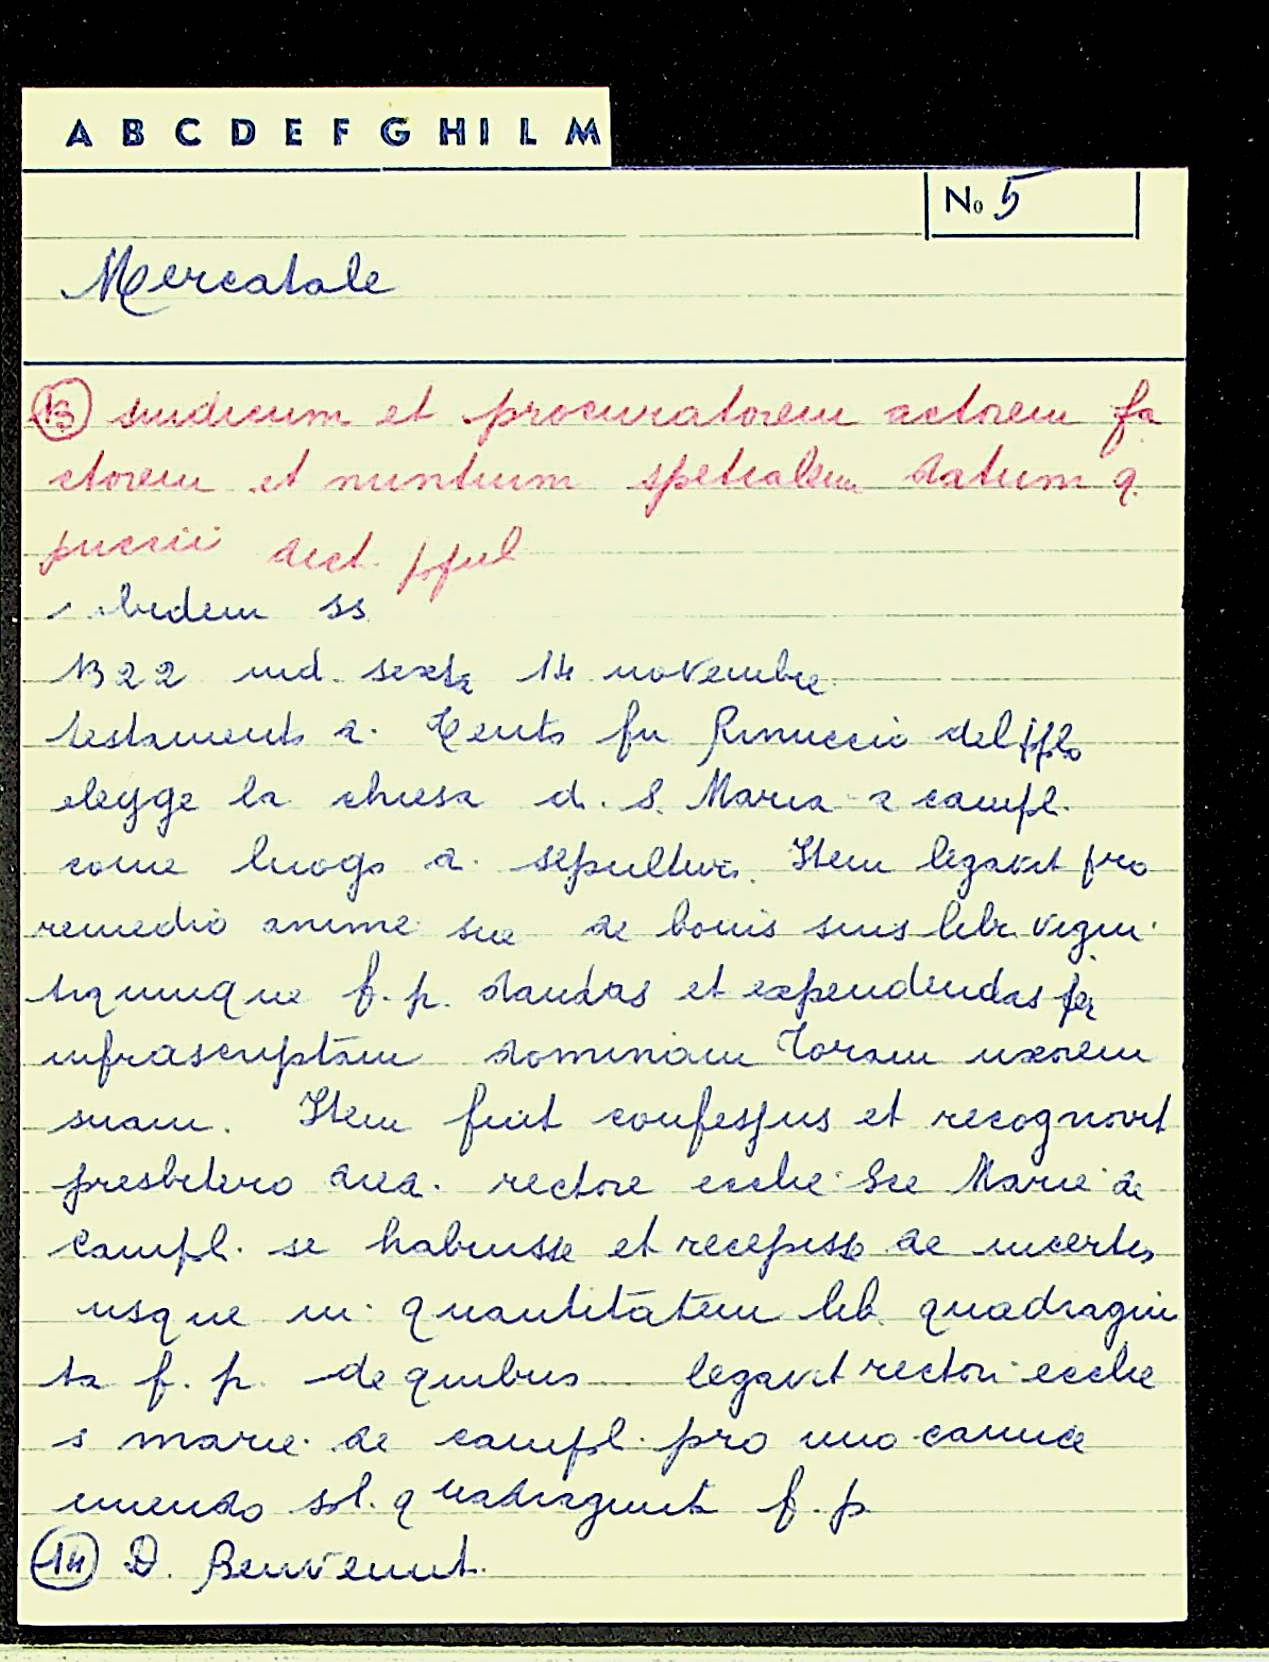 A B C D E F G H I L M
No 5
Mercatale
13 sindicum et procuratorem actorem fa
ctorem et nuntium spetialem datum q.
puccii dict. ppul
ibidem ss
1322 ind. sexta 14 novembre
testamento di Cento fu Rinuccio del pplo
elegge la chiesa di S. Maria a campl.
come luogo di sepoltura. Item legavit pro
remedio anime sue de bonis suis libr. vigin
tiquinque f. p. dandas et expendendas per
infrascriptam dominam Toram uxorem
suam. Item fuit confessus et recognovit
presbitero rectore ecclie Sce Marie de
Campl. se habuisse et recepisse de incertis
usque in quantitatem lib. quadragin
ta f. p. de quibus legavit rectori ecclie
s marie de campl. pro uno camice
emendo sol. quadraginta f. p.
14 D. Benvenut.